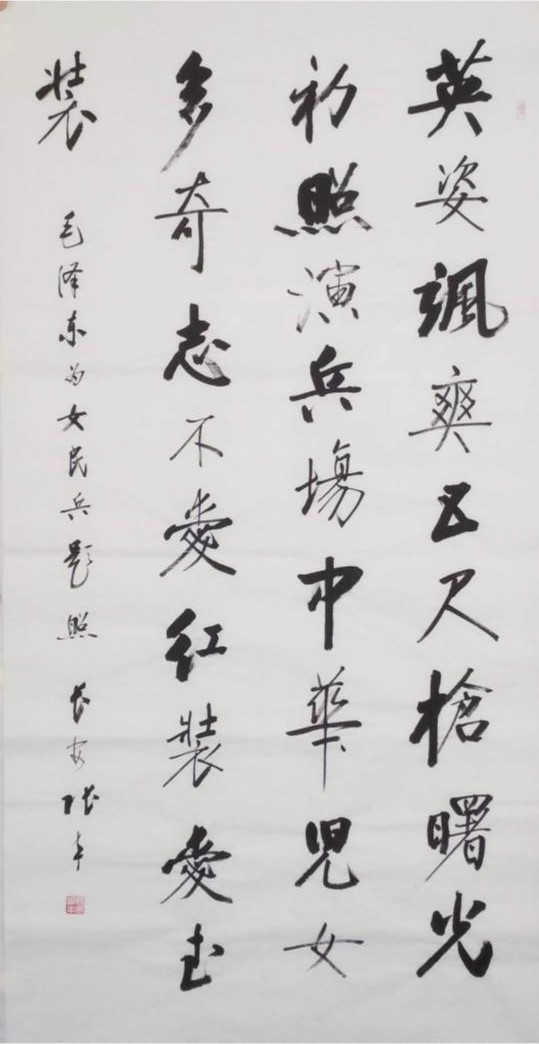 英姿颯爽五尺槍曙光
初照演兵場中華兒女
多奇志不愛红裝愛武
裝
毛泽东为女民兵题照 长安